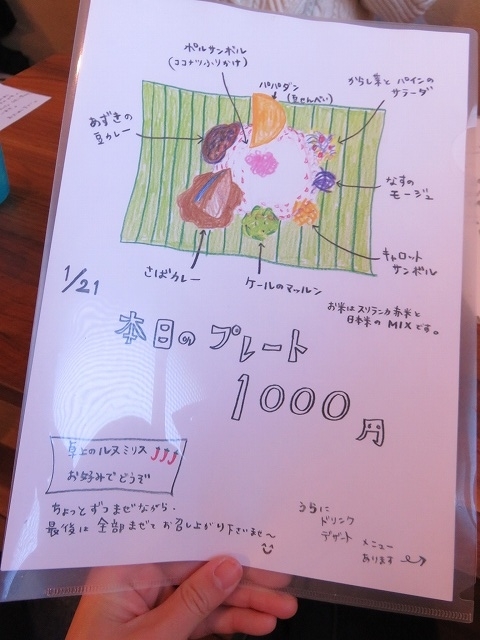 ポルサンボル
(ココナツふりかけ)
パパダン
(豆せんべい)
からし菜とパインの
サラーダ
あずきの
豆カレー
なすの
モージュ
キャロット
サンボル
さばカレー
ケールのマッルン
1/21
お米はスリランカ赤米と
日本米のMIXです。
本日のプレート
1000円
卓上のルヌミリス
お好みでどうぞ
ちょっとずつまぜながら、
最後は全部まぜてお召し上がり下さいませ〜
うらに
ドリンク
デザート
メニュー
あります